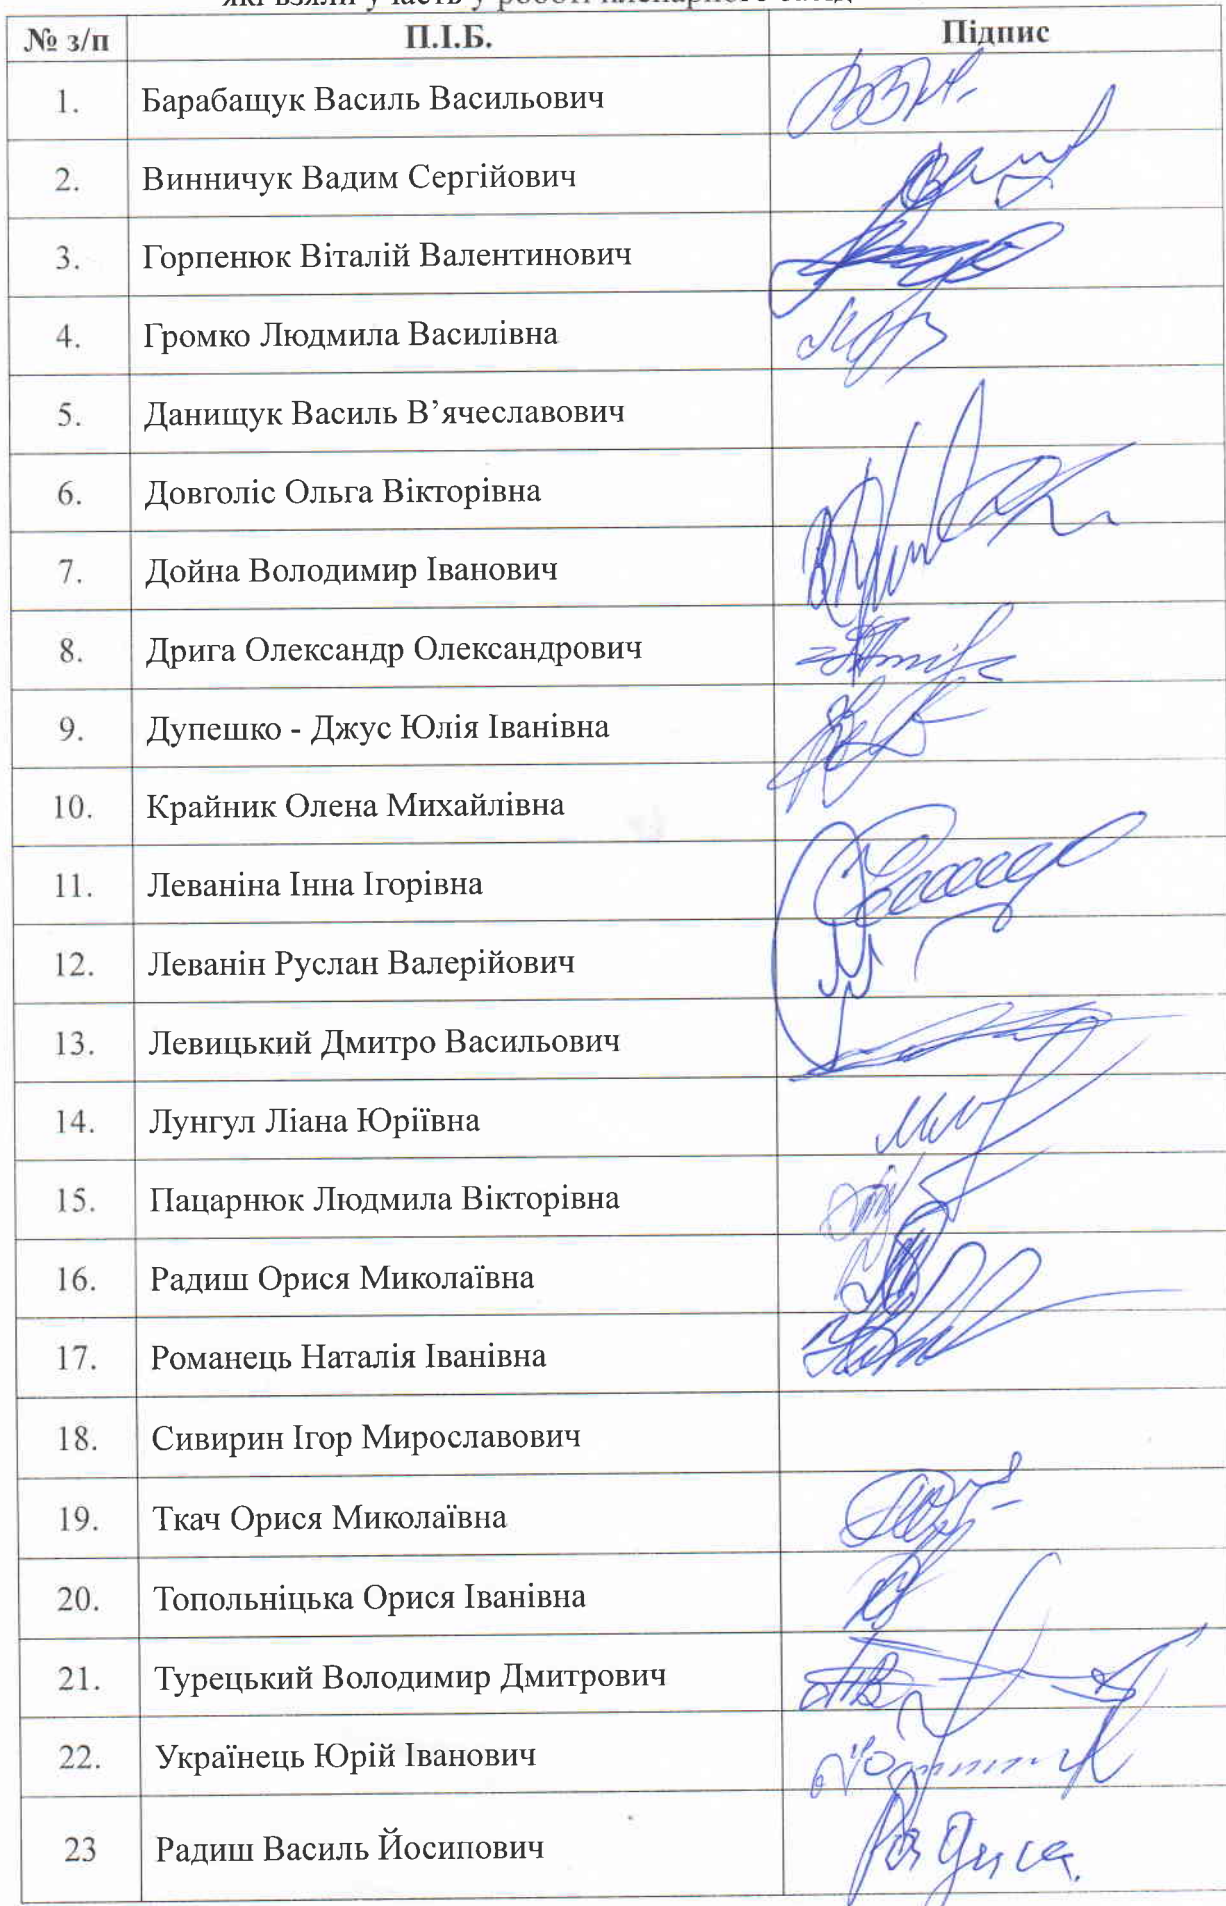 які взяли участь у роботі пленарного засід
№ з/п П.І.Б. Підпис
1. Барабащук Василь Васильович
2. Винничук Вадим Сергійович
3. Горпенюк Віталій Валентинович
4. Громко Людмила Василівна
5. Данищук Василь В’ячеславович
6. Довголіс Ольга Вікторівна
7. Дойна Володимир Іванович
8. Дрига Олександр Олександрович
9. Дупешко - Джус Юлія Іванівна
10. Крайник Олена Михайлівна
11. Леваніна Інна Ігорівна
12. Леванін Руслан Валерійович
13. Левицький Дмитро Васильович
14. Лунгул Ліана Юріївна
15. Пацарнюк Людмила Вікторівна
16. Радиш Орися Миколаївна
17. Романець Наталія Іванівна
18. Сивирин Ігор Мирославович
19. Ткач Орися Миколаївна
20. Топольніцька Орися Іванівна
21. Турецький Володимир Дмитрович
22. Українець Юрій Іванович
23 Радиш Василь Йосипович